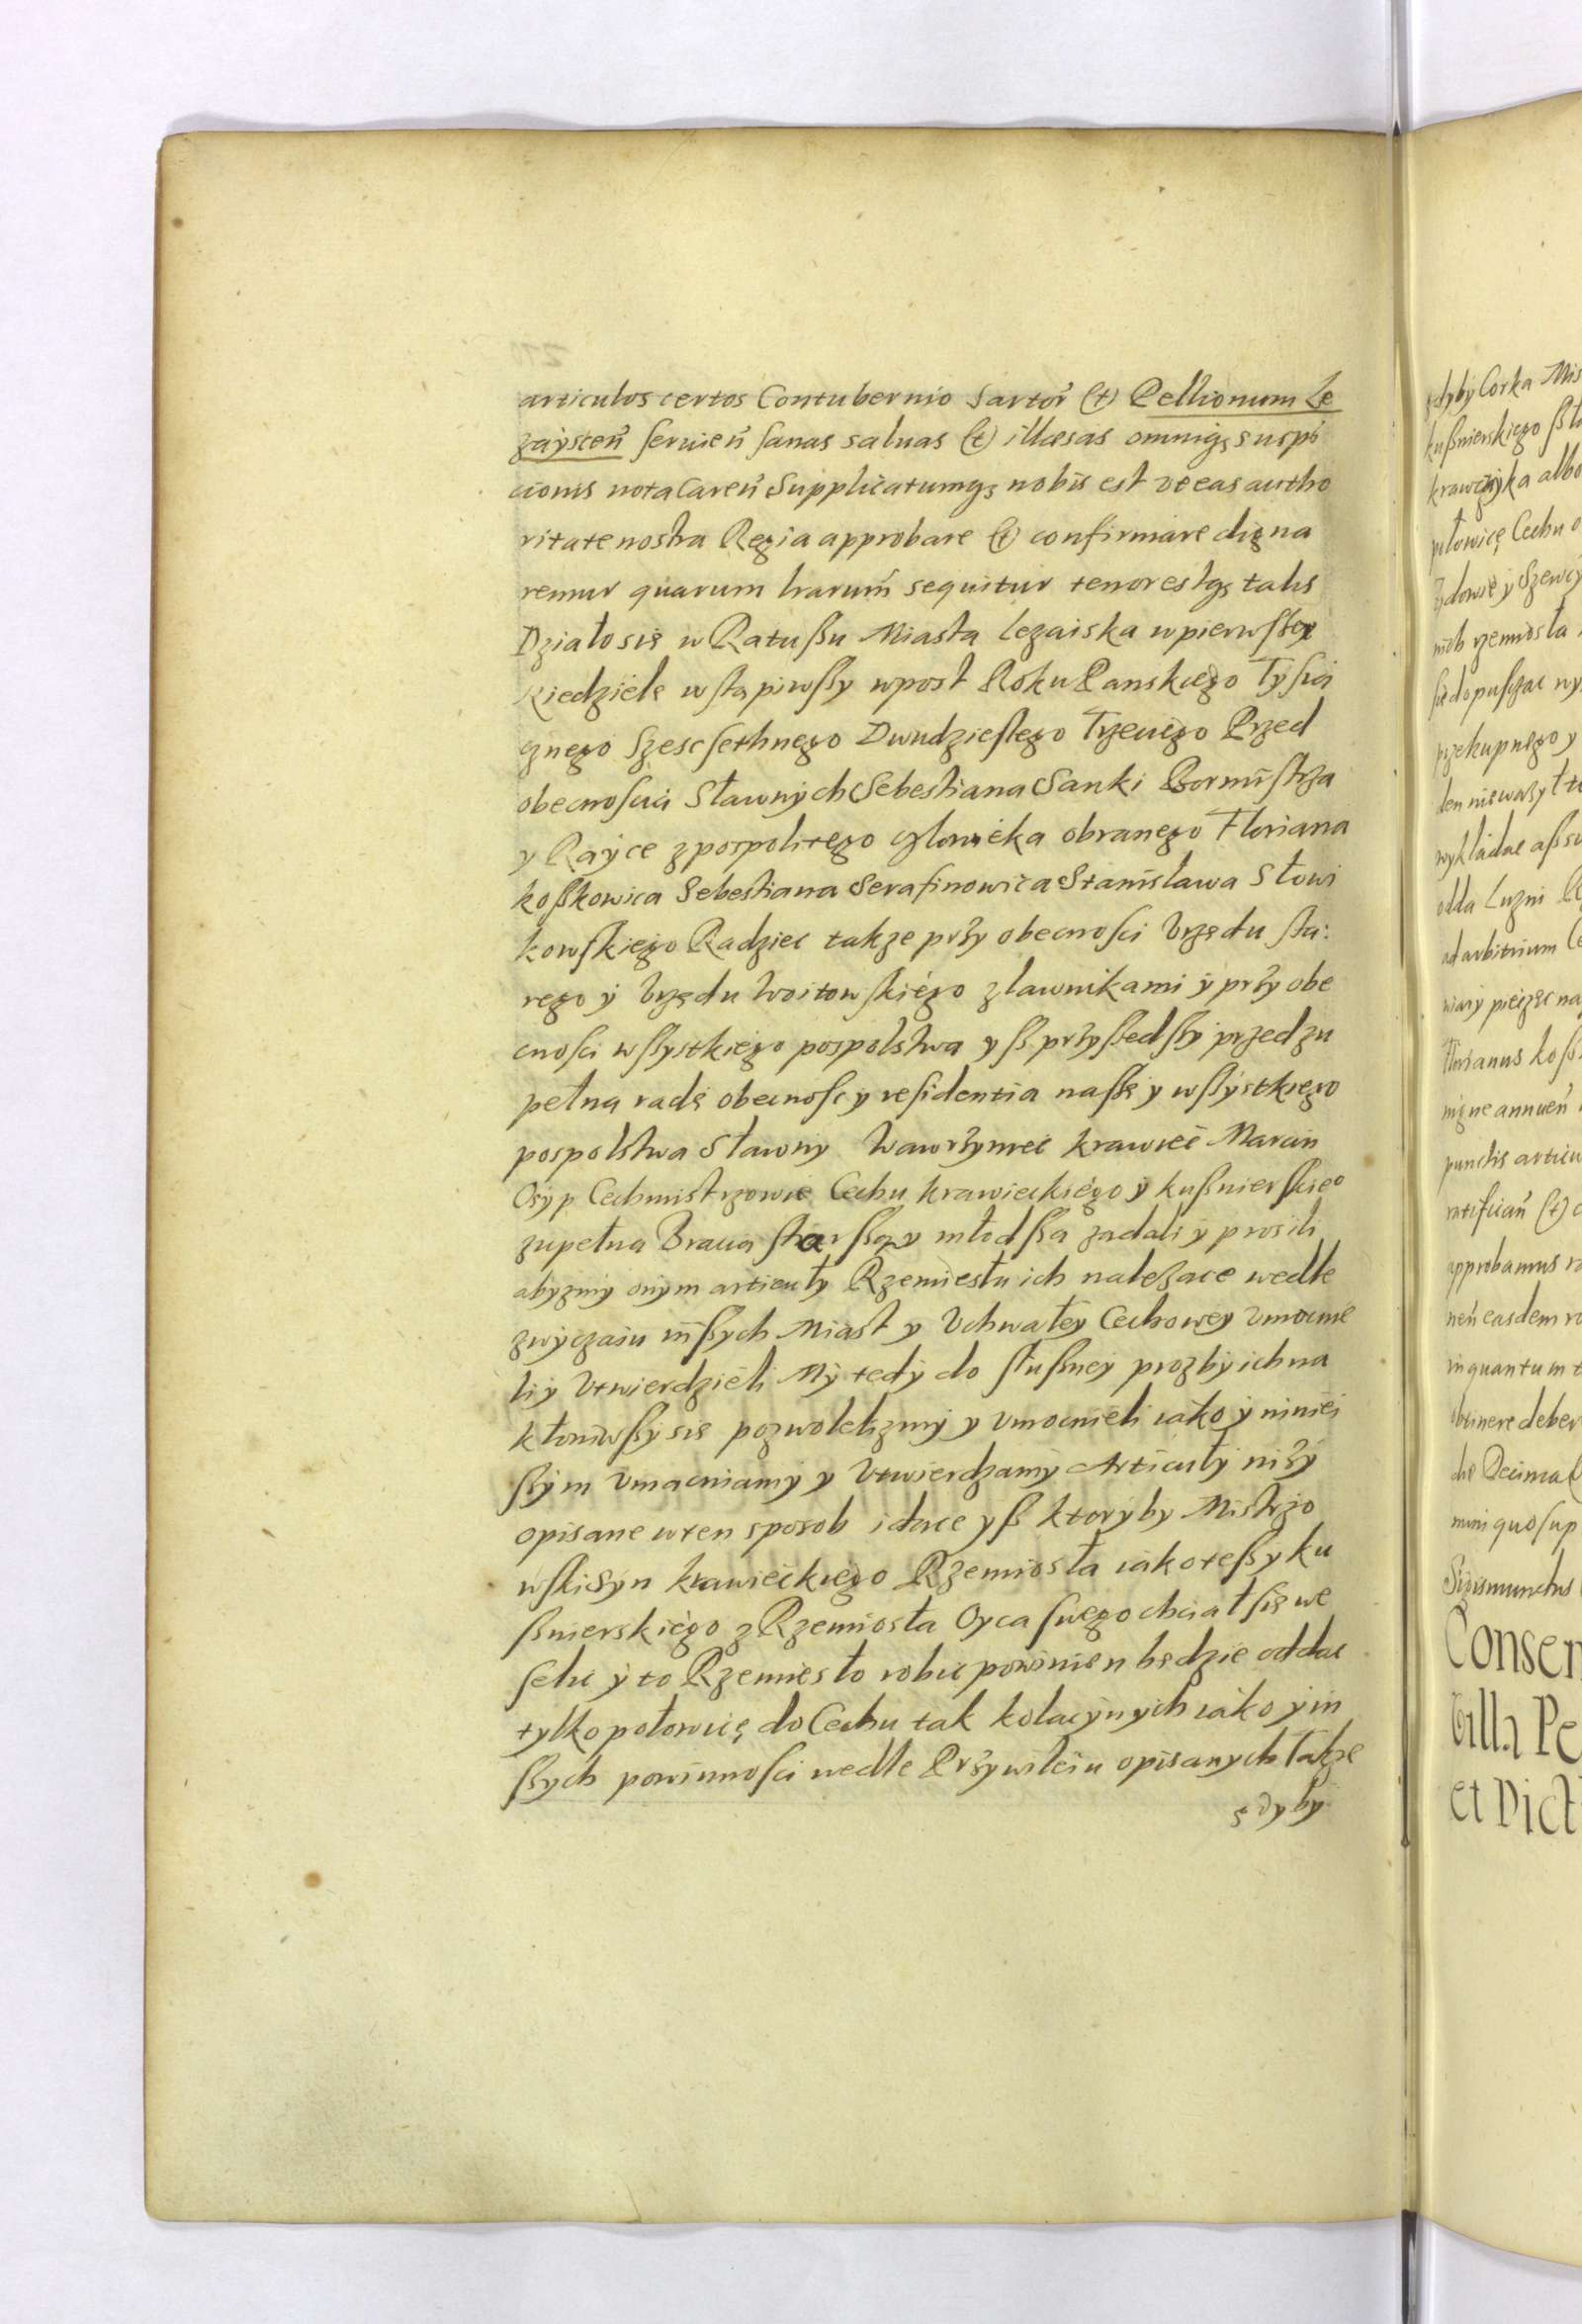 articulos certos Contubernio Sartor̃ (et) Pellionum Le
zaysceñ ſervieñ ſanas salvas (et) illæsas omniq₃ suspi
cionis nota Careñ Supplicatumq₃ nobis est vt eas autho
ritate nostra Regia approbare (et) confirmare digna
remur quarum lrarum̃ sequitur tenor estq₃ talis
Działo się w Ratuſſu Miasta Lezaiska w pierwſſey
Niedziele wſtąpiwſſy w post Roku Panskiego Tyſią
cznego Szescſethnego Dwudzieſtego Trzeciego Przed
obecnoſcią Sławnych Sebestiana Sanki Bormiſtrza
y Rayce z pospolitego człowieka obranego Floriana
koſſkowica Sebestiana Serafinowica Stanisława Słowi
kowſkiego Radziec takze przy obecnoſci Vrzędu ſta:
rego y Vrzędu Woitowſkiego z ławnikami y przy obe
cnoſci wſſystkiego pospolstwa yſſ przyſſedſſy przed zu
pełną radę obecnoſc y reſidentia naſſę y wſſystkiego
pospolstwa Sławny Wawrzyniec krawiec Marcin
Osyp Cechmistrzowie Cechu krawieckiego y kuſſnierſkieº
zupełna Bracia ſtarſſa y młodſſa ządali y prosili
abyzmy onym articuły Rzemiesłu ich nalezace wedle
zwyczaiu inſſych Miast y Vchwałey Cechowey Vmocnie
li y Vtwierdzieli My tedy do ſłuſſney prozby ich na
kłoniwſſy się pozwolelizmy y Vmocnieli iako y niniei
ſſym Vmacniamy y Vtwierdzamy Articuły nizy
opisane w ten sposob idące yſſ ktoryby Mistrzo
wſki Syn krawieckiego Rzemiosła iako teſſ y ku
ſſnierskiego z Rzemiosła Oyca ſwego chciał ſię we
ſelic y to Rzemiesło robic powinien będzie oddac
tylko połowicę do Cechu tak kolacynych iako y in
ſſych powinnoſci wedle Przywileiu opisanych Takze
gdyby
gdyby Corka Mis
kuſſnierskiego
krawczyka albo
połowicę Cechu
y Szewcy
rzemiosła
ſię dopuſczac
przekupnego y
wykładac
odda
ad arbitrium
pieczęc na
Florianus koſſ
annueñ
punctis articu
ratificañ (et)
approbamus
neñ easdem
in quantum
obtinere deber
die Decima
quo ſup
Sigismundus
Conser
Villa Pe
et Dict